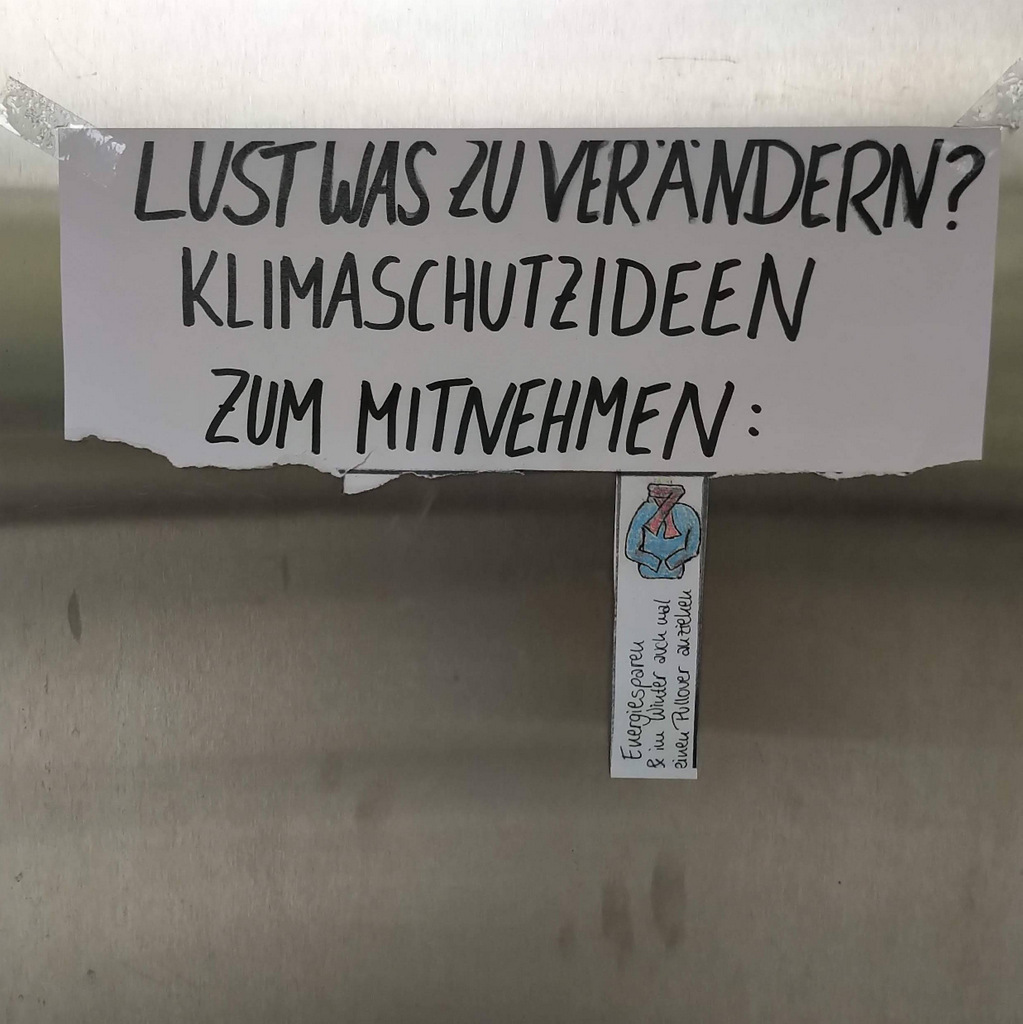 LUST WAS ZU VERÄNDERN?
KLIMASCHUTZIDEEN
ZUM MITNEHMEN:
Energiesparen
& im Winter auch mal
einen Pullover anziehen